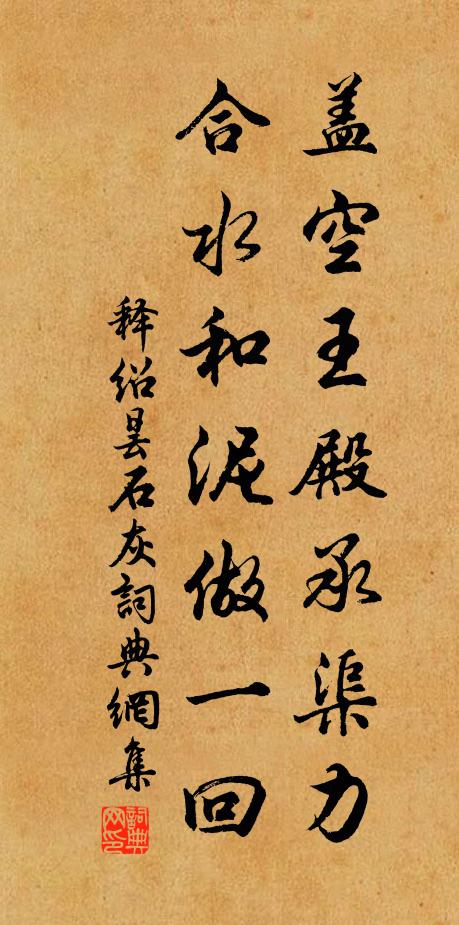 盖空王殿承渠力
合水和泥做一回
释绍昙石灰詞典網集
詞典网印